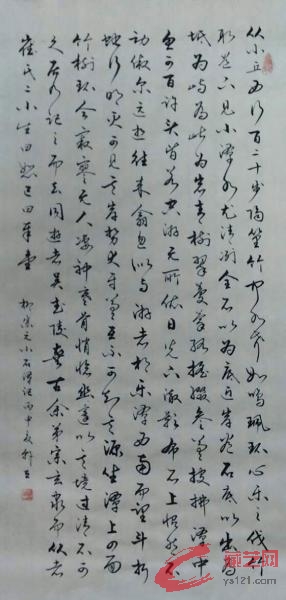 从小丘西行百二十步隔篁竹闻水声如鸣珮环心乐之伐竹
取道下见小潭水尤清冽全石以为底近岸卷石底以出为
坻为屿为嵁为岩青树翠蔓蒙络摇缀参差披拂潭中
鱼可百许头皆若空游无所依日光下澈影布石上怡然不
动俶尔远逝往来翕忽似与游者相乐潭西南而望斗折
蛇行明灭可见其岸势犬牙差互不可知其源坐潭上四面
竹树环合寂寥无人凄神寒骨悄怆幽邃以其境过清不可
久居乃记之而去同游者吴武陵龚古余弟宗玄隶而从者
崔氏二小生曰恕己曰奉壹
柳宗元小石潭记丙申夏
ys121.com